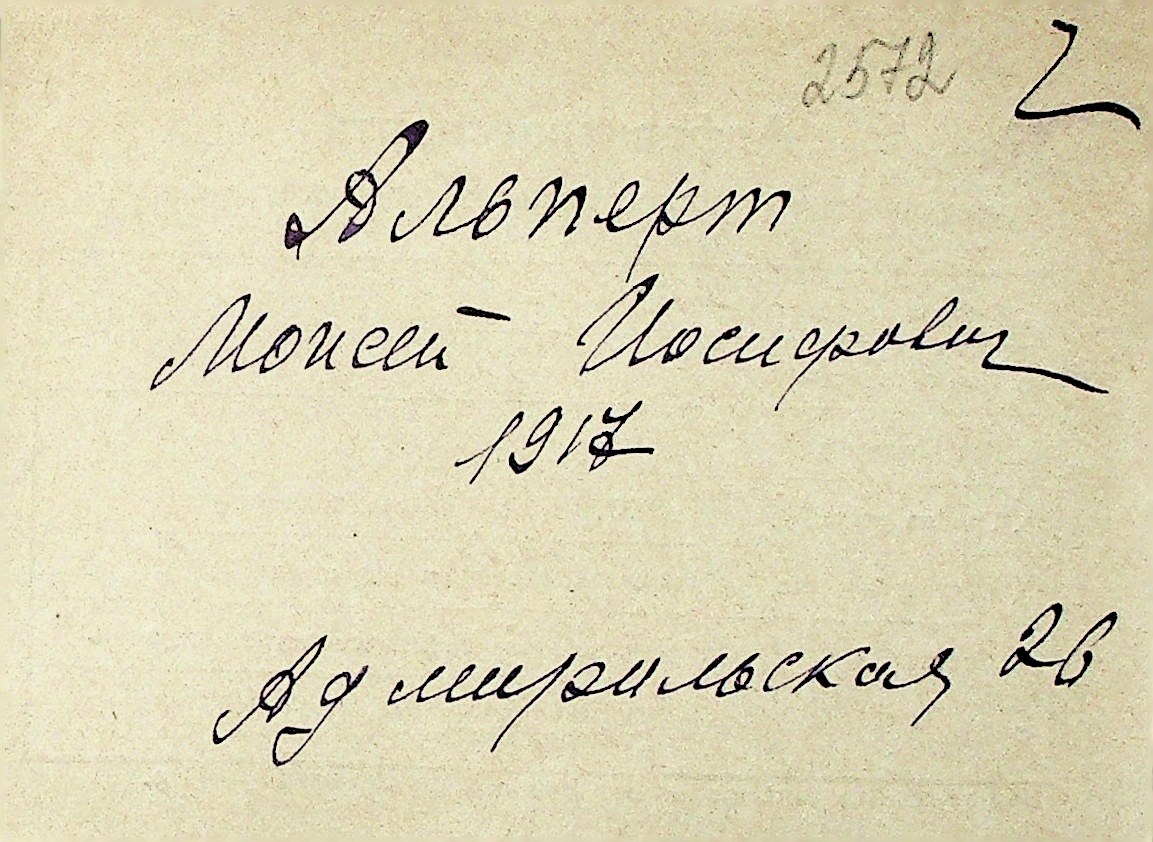 2572
Альперт
Моисей Иосифович
1917
Адмиральская 26